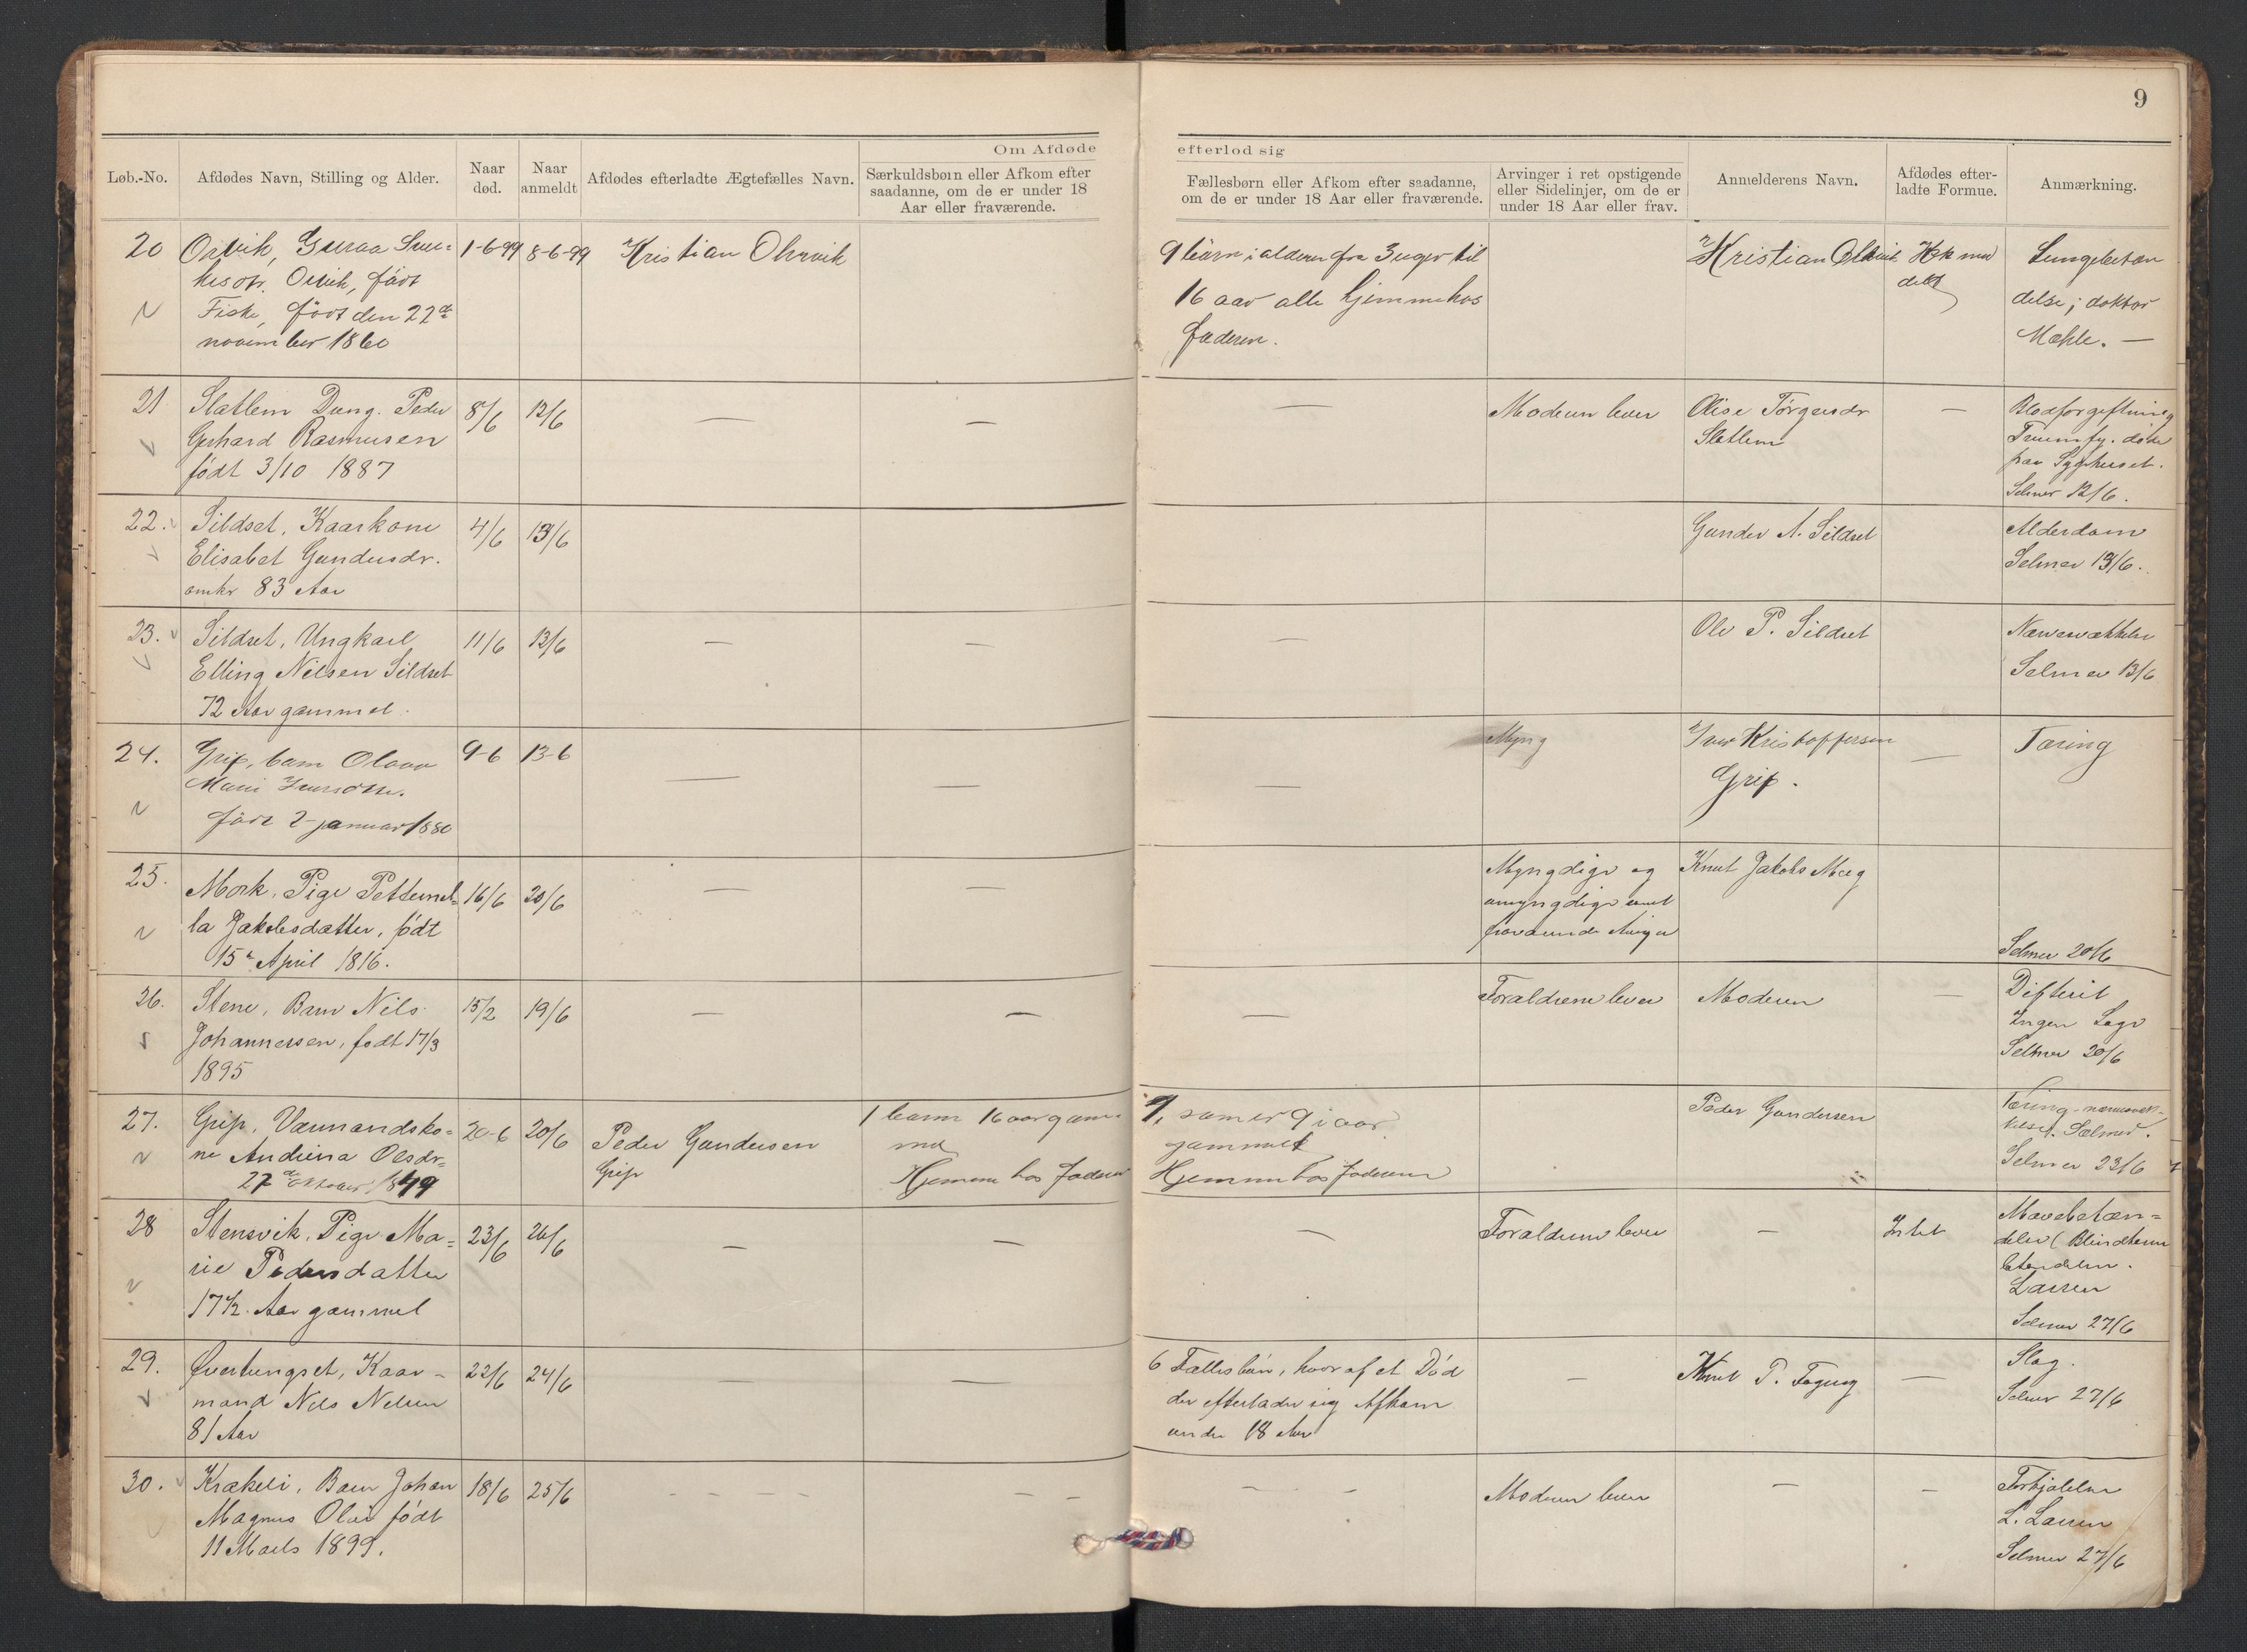 9
Om Afdøde
efterlod sig
Løb.-No.
Afdødes Navn, Stilling og Alder.
Naar
død.
Naar
anmeldt
Afdødes efterladte Ægtefælles Navn.
Særkuldsbørn eller Afkom efter
saadanne, om de er under 18
Aar eller fraværende.
Fællesbørn eller Afkom efter saadanne,
om de er under 18 Aar eller fraværende.
Arvinger i ret opstigende
eller Sidelinjer, om de er
under 18 Aar eller frav.
Anmelderens Navn.
Afdødes efter-
ladte Formue.
Anmærkning.
20
født
Fiske, født den 22de
november 1860
1-6-99
8-6-99
Kristian
9 børn i alderen fra 3 uger til
16 aar alle hjemme hos
faderen.
Kristian
Lungebetæn
delse; doktor
Mæhle. —
21
Slatlem Dreng. Peder
Gerhard Rasmusen
født 3/10 1887
8/6
12/6
—
—
—
Moderen lever
Olise
Slatlem
—
Blodforgiftning
paa Sygehuset.
Selmer 12/6.
22.
Sildset, Kaarkone
Elisabet Gundersdr.
omkr 83 Aar
4/6
13/6
Gunder A. Sildset
Alderdom
Selmer 13/6.
23.
Sildset, Ungkarl
Elling Nilsen Sildset
72 Aar gammel.
11/6
13/6
—
—
—
Ole P. Sildset
Selmer 13/6
24.
Grip, barn Olava
Marie
født 2 januar 1880
9-6
13-6
—
—
—
Myng
Iver Kristoffersen
Grip.
—
Tæring
25.
Mork, Pige Petternel-
la Jakobsdatter, født
15de April 1816.
16/6
20/6
—
—
Myngdige og
umyngdige samt
fraværende Arvinger
Knut Jakobs
Selmer 20/6
26.
Stene, Barn Nils
Johannessen, født 17/3
1895
15/2
19/6
—
—
—
Forældrene lever
Moderen
—
Difterit
Ingen Læge
Selmer 20/6
27.
Grip, Vaanandsko-
ne Andrina Olsdr=
27de oktober 1849
20-6
20/6
Peder Gundersen
Grip
1 barn 16 aar gam
mel
Hjemme hos faderen
1, som er 9 i aar
gammelt
Hjemme hos faderen
Peder Gundersen
Tæring
Selmer 23/6
28
Stensvik, Pige Ma=
rie Pedersdatter
17½ Aar gammel
23/6
26/6
—
—
—
Forældrene lever
—
Intet
Mavebetæn=
delse (Blindtarm
betændelse.
Larsen
Selmer 27/6
29.
Kaar-
mand Nils Nilsen
81 Aar
22/6
24/6
—
—
6 Fællesbørn, hvoraf et Død
der efterlader sig Afkom
under 18 Aar
—
Knut P.
—
Slag.
Selmer 27/6
30.
Krækeli, Barn Johan
Magnus Olsen født
11 Marts 1899.
18/6
25/6
- - - -
- -
- -
Moderen lever
—
-
L. Larsen
Selmer 27/6